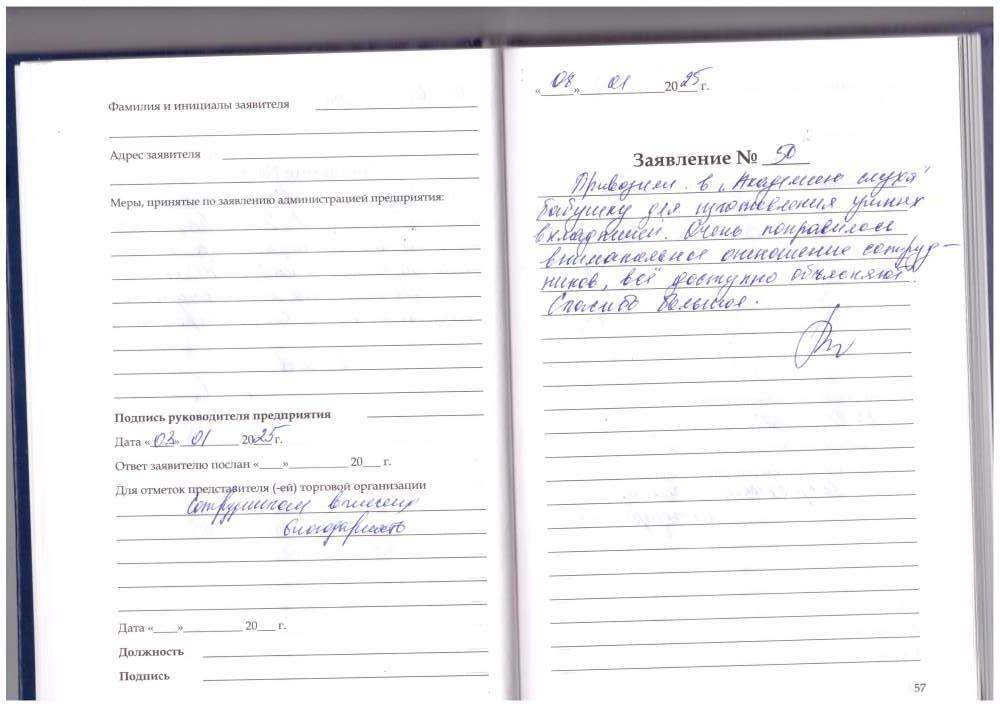 Фамилия и инициалы заявителя
Адрес заявителя
Меры, принятые по заявлению администрацией предприятия:
Подпись руководителя предприятия
Дата «08» 01 2025 г.
Ответ заявителю послан «____»__________ 20___ г.
Для отметок представителя (-ей) торговой организации
Сотрудникам вынесена
благодарность
Дата «____»__________ 20___ г.
Должность
Подпись
«08» 01 2025 г.
Заявление № 50
Привозили в „Академию слуха"
бабушку для изготовления ушных
вкладышей. Очень понравилось
внимательное отношение сотруд-
ников, всё доступно объясняют.
Спасибо большое.
57